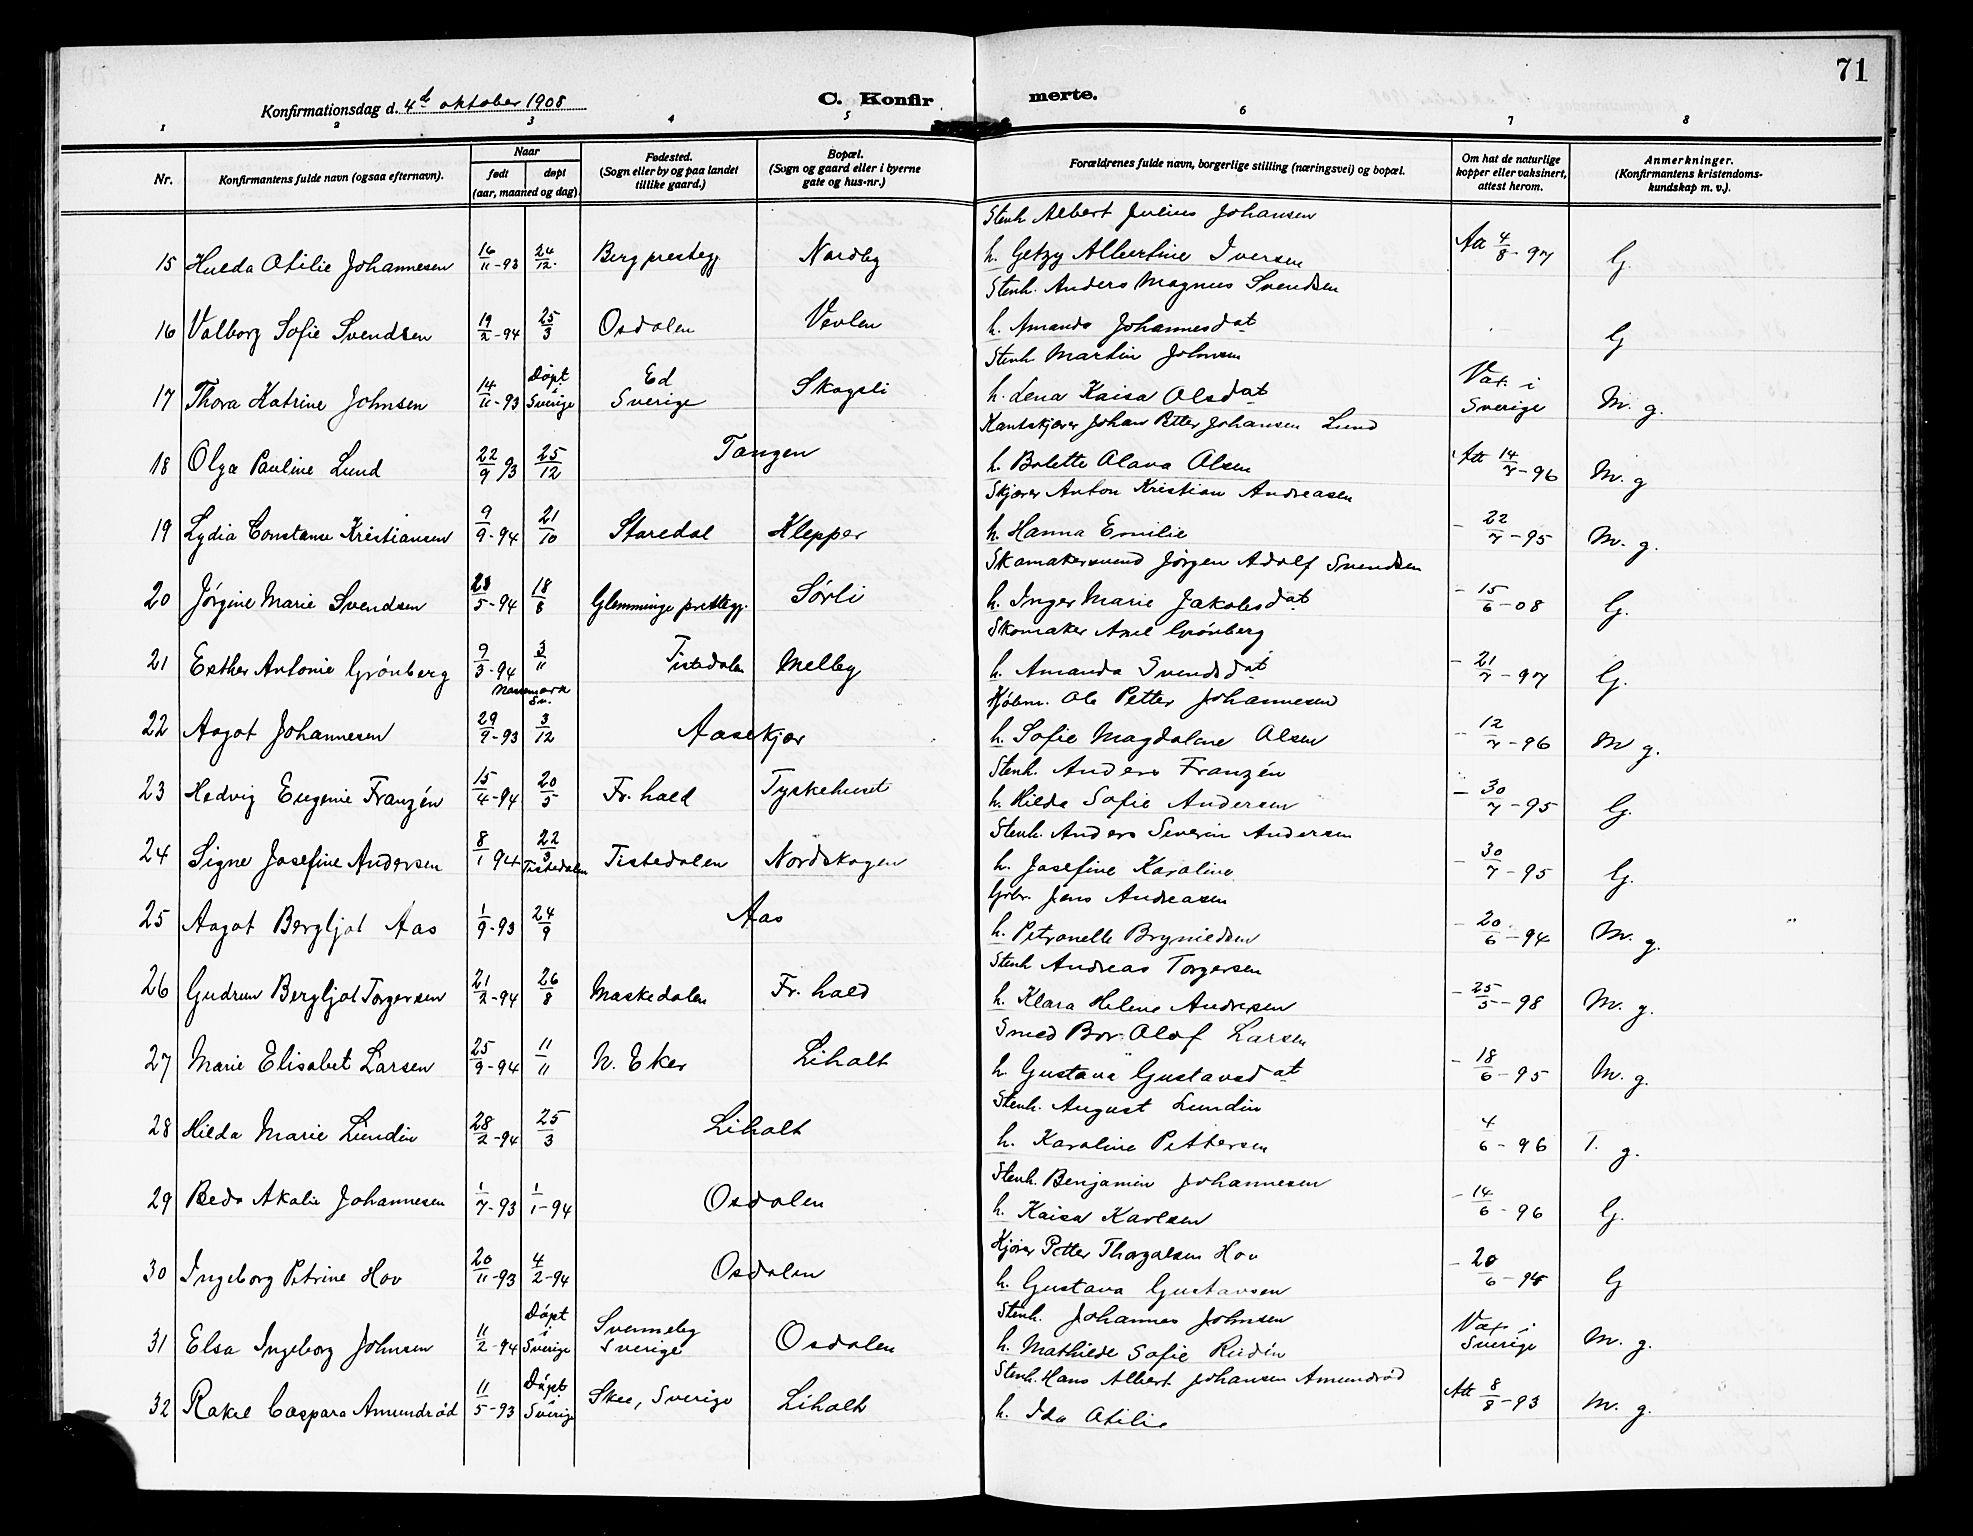 71
Konfirmationsdag d. 4de oktober 1908
C. Konfirmerte.
1 2 3 4 5 6 7 8
Nr.
Konfirmantens fulde navn (ogsaa efternavn).
Naar
født
døpt
(aar, maaned og dag).
Fødested.
(Sogn eller by og paa landet
tillike gaard.)
Bopæl.
(Sogn og gaard eller i byerne
gate og hus-nr.)
Forældrenes fulde navn, borgerlige stilling (næringsvei) og bopæl.
Om hat de naturlige
kopper eller vaksinert,
attest herom.
Anmerkninger.
(Konfirmantens kristendoms-
kundskap m. v.).
Stenh. Albert Julius Johansen
15 Hulda Otilie Johannesen 16/11-93 24/12. Berg prestegj. Nordby h. Getzy Albertine Iversen Att 4/8-97 G.
Stenh. Anders Magnus Svendsen
16 Valborg Sofie Svendsen 19/2-94 25/3 Osdalen Vevlen h. Amanda Johannesdat G
Stenh. Martin Johnsen
17 Thora Katrine Johnsen 14/11-93 Døpt i Sverige Ed Sverige Skogsli h. Lena Kaisa Olsdat Vax. i Sverige M. g.
Kantskjærer Johan Petter Johansen Lund
18 Olga Pauline Lund 22/9 93 25/12 Tangen h. Bolette Olava Olsen Att 14/7-96 M. g
Skjærer Anton Kristian Andreasen
19 Lydia Constanse Kristiansen 9/9-94 21/10 Staredal Klepper h. Hanna Emilie - 22/7-95 M. g.
Skomakersvend Jørgen Adolf Svendsen
20 Jørgine Marie Svendsen 23/5-94 18/8 Glemminge prestegj. Sørli h. Inger Marie Jakobsdat - 15/6-08 G.
Skomaker Axel Grönberg
21 Esther Antonie Grönberg 9/3-94 3/11 Tistedalen Melby h. Amanda Svendsdat - 21/7-97 G.
Kjøbm. Ole Petter Johannesen
22 Aagot Johannesen 29/9-93 3/12 Aasekjær h. Sofie Magdaline Olsen - 12/7-96 M g.
Stenh. Anders Franzén
23 Hedvig Eugenie Franzén 15/4-94 20/5 Fr. hald Tyskehuset h. Hilda Sofie Andersen - 30/7-95 G.
Stenh. Anders Severin Andersen
24 Signe Josefine Andersen 8/1 94 22/3 Tistedalen Tistedalen Nordskogen h. Josefine Karoline - 30/7-95 G.
Grbr. Jens Andreasen
25 Aagot Bergljot Aas 1/9-93 24/9 Aas h. Petronelle Brynildsen - 20/6-94 M. g.
Stenh Andreas Torgersen
26 Gudrun Bergljot Torgersen 21/2-94 26/8 Maskedalen Fr. hald h. Klara Helene Andresen - 25/5-98 M. g.
Smed Bror Olof Larsen
27 Marie Elisabet Larsen 25/9-94 11/11 N. Eker Liholt h. Gustava Gustavsdat - 18/6-95 M. g.
Stenh. August Lundin
28 Hilda Marie Lundin 28/2-94 25/3 Liholt h. Karoline Pettersen 4/6-96 T. g.
Stenh. Benjamin Johannesen
29 Beda Akalie Johannesen 1/7-93 1/1-94 Osdalen h. Kaisa Karlsen - 14/6-96 G.
Kjører Petter Thorvalsen Hov
30 Ingeborg Petrine Hov 20/11-93 4/2-94 Osdalen h. Gustava Gustavsen - 20/6-95 G
Stenh. Johannes Johnsen
31 Elsa Ingeborg Johnsen 11/2-94 Døpt i Sverige Svenneby Sverige Osdalen h. Mathilde Sofie Rudén Vax. i Sverige M. g.
Stenh. Hans Albert Johansen Amundröd
32 Rakel Caspara Amundröd 11/5-93 Døpt i Sverige Skee, Sverige Liholt h. Ida Otilie Att 8/8-93 M. g.